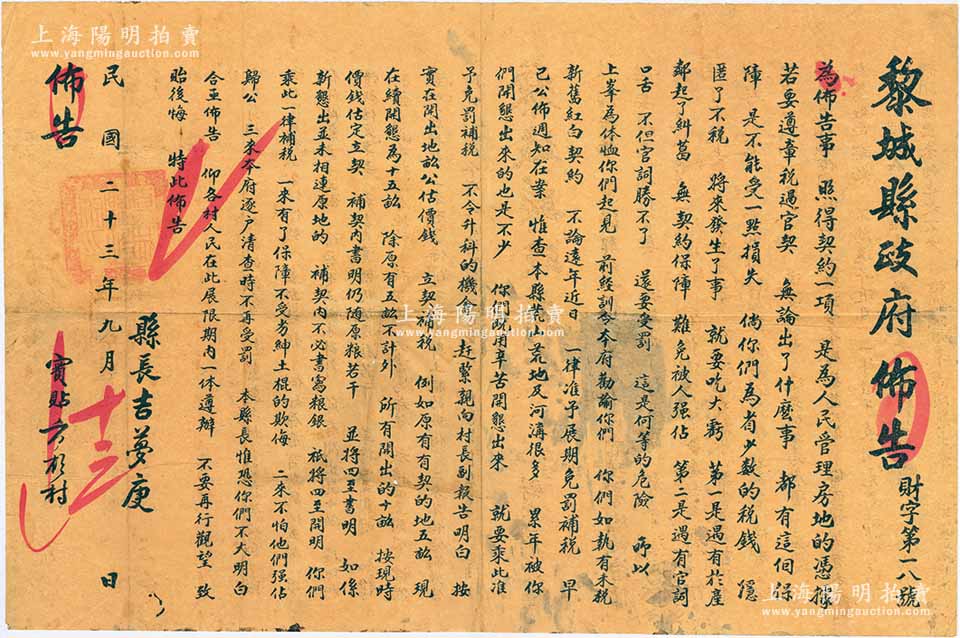 黎城縣政府佈告 財字第一八號
為佈告事 照得契約一項 是為人民管理房地的憑據
若要遵章稅過官契 無論出了什麼事 都有這個保
障 是不能受一點損失 倘你們為省少數的稅錢 隱
匿了不稅 將來發生了事 就要吃大虧 第一是遇有於產
鄰起了糾葛 無契約保障 難免被人强佔 第二是遇有官詞
口舌 不但官詞勝不了 還要受罰 這是何等的危險 所以
上峯為体恤你們起見 前經訓令本府勸諭你們 你們如執有未稅
新舊紅白契約 不論遠年近日 一律准予展期免罰補稅 早
已公佈週知在案 惟查本縣荒山荒地及河溝很多 累年被你
們開懇出來的也是不少 你們既用辛苦開懇出來 就要乘此准
予免罰補稅 不令升科的機會 赶緊親向村長副報告明白 按
實在開出地畝公估價錢 立契補稅 例如原有有契的地五畝 現
在續開懇為十五畝 除原有五畝不計外 所有開出的十畝 按現時
價錢估定立契 補契內書明仍随原粮若干 並將四至書明 如係
新懇出並未相連原地的 補契內不必書寫粮銀 祇將四至開明 你們
乘此一律補稅 一來有了保障不受劣紳土棍的欺侮 二來不怕他們强佔
歸公 三來本府逐户清查時不再受罰 本縣長惟恐你們不大明白
合亟佈告 仰各村人民在此展限期內一体遵辦 不要再行觀望 致
貽後悔 特此佈告
縣長吉夢庚
民國二十三年九月十三日
佈告
實貼 村
上海陽明拍賣
www.yangmingauction.com
上海陽明拍賣
www.yangmingauction.com
上海陽明拍賣
www.yangmingauction.com